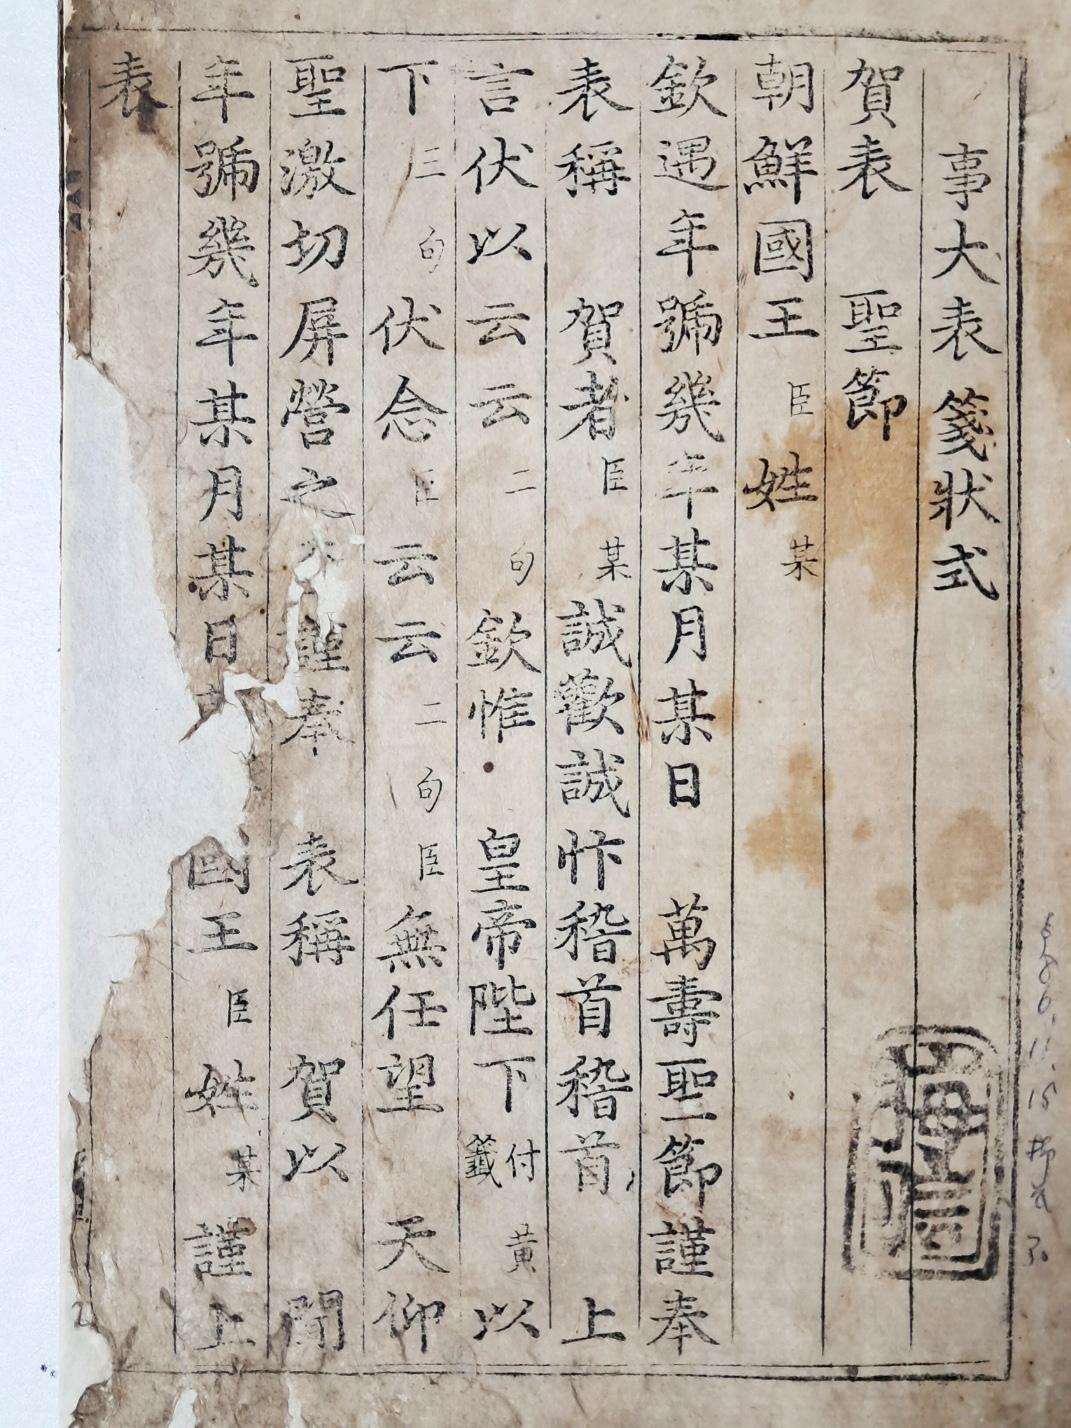 事大表箋狀式
賀表 聖節
朝鮮國王臣姓某
欽遇年號幾年某月某日 萬壽聖節謹奉
表稱 賀者臣某誠歡誠忭稽首稽首 上
言伏以云云二句欽惟 皇帝陛下付黃籤以
下三句伏念臣云云二句臣無任望 天仰
聖激切屏營之 謹奉 表稱 賀以 聞
年號幾年某月某日 國王臣姓某 謹上
表